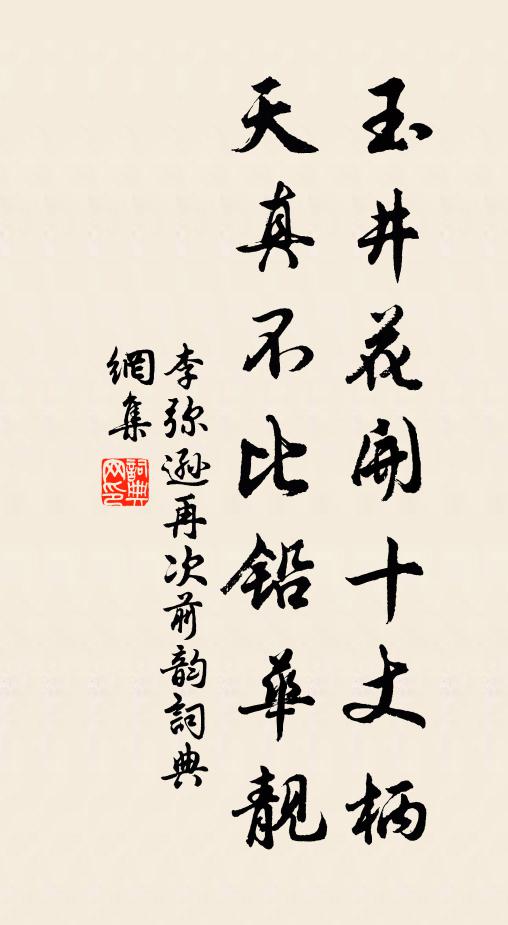 玉井花開十丈柄
天真不比鉛華靚
李弥遜再次前韵詞典
網集
詞典
网印